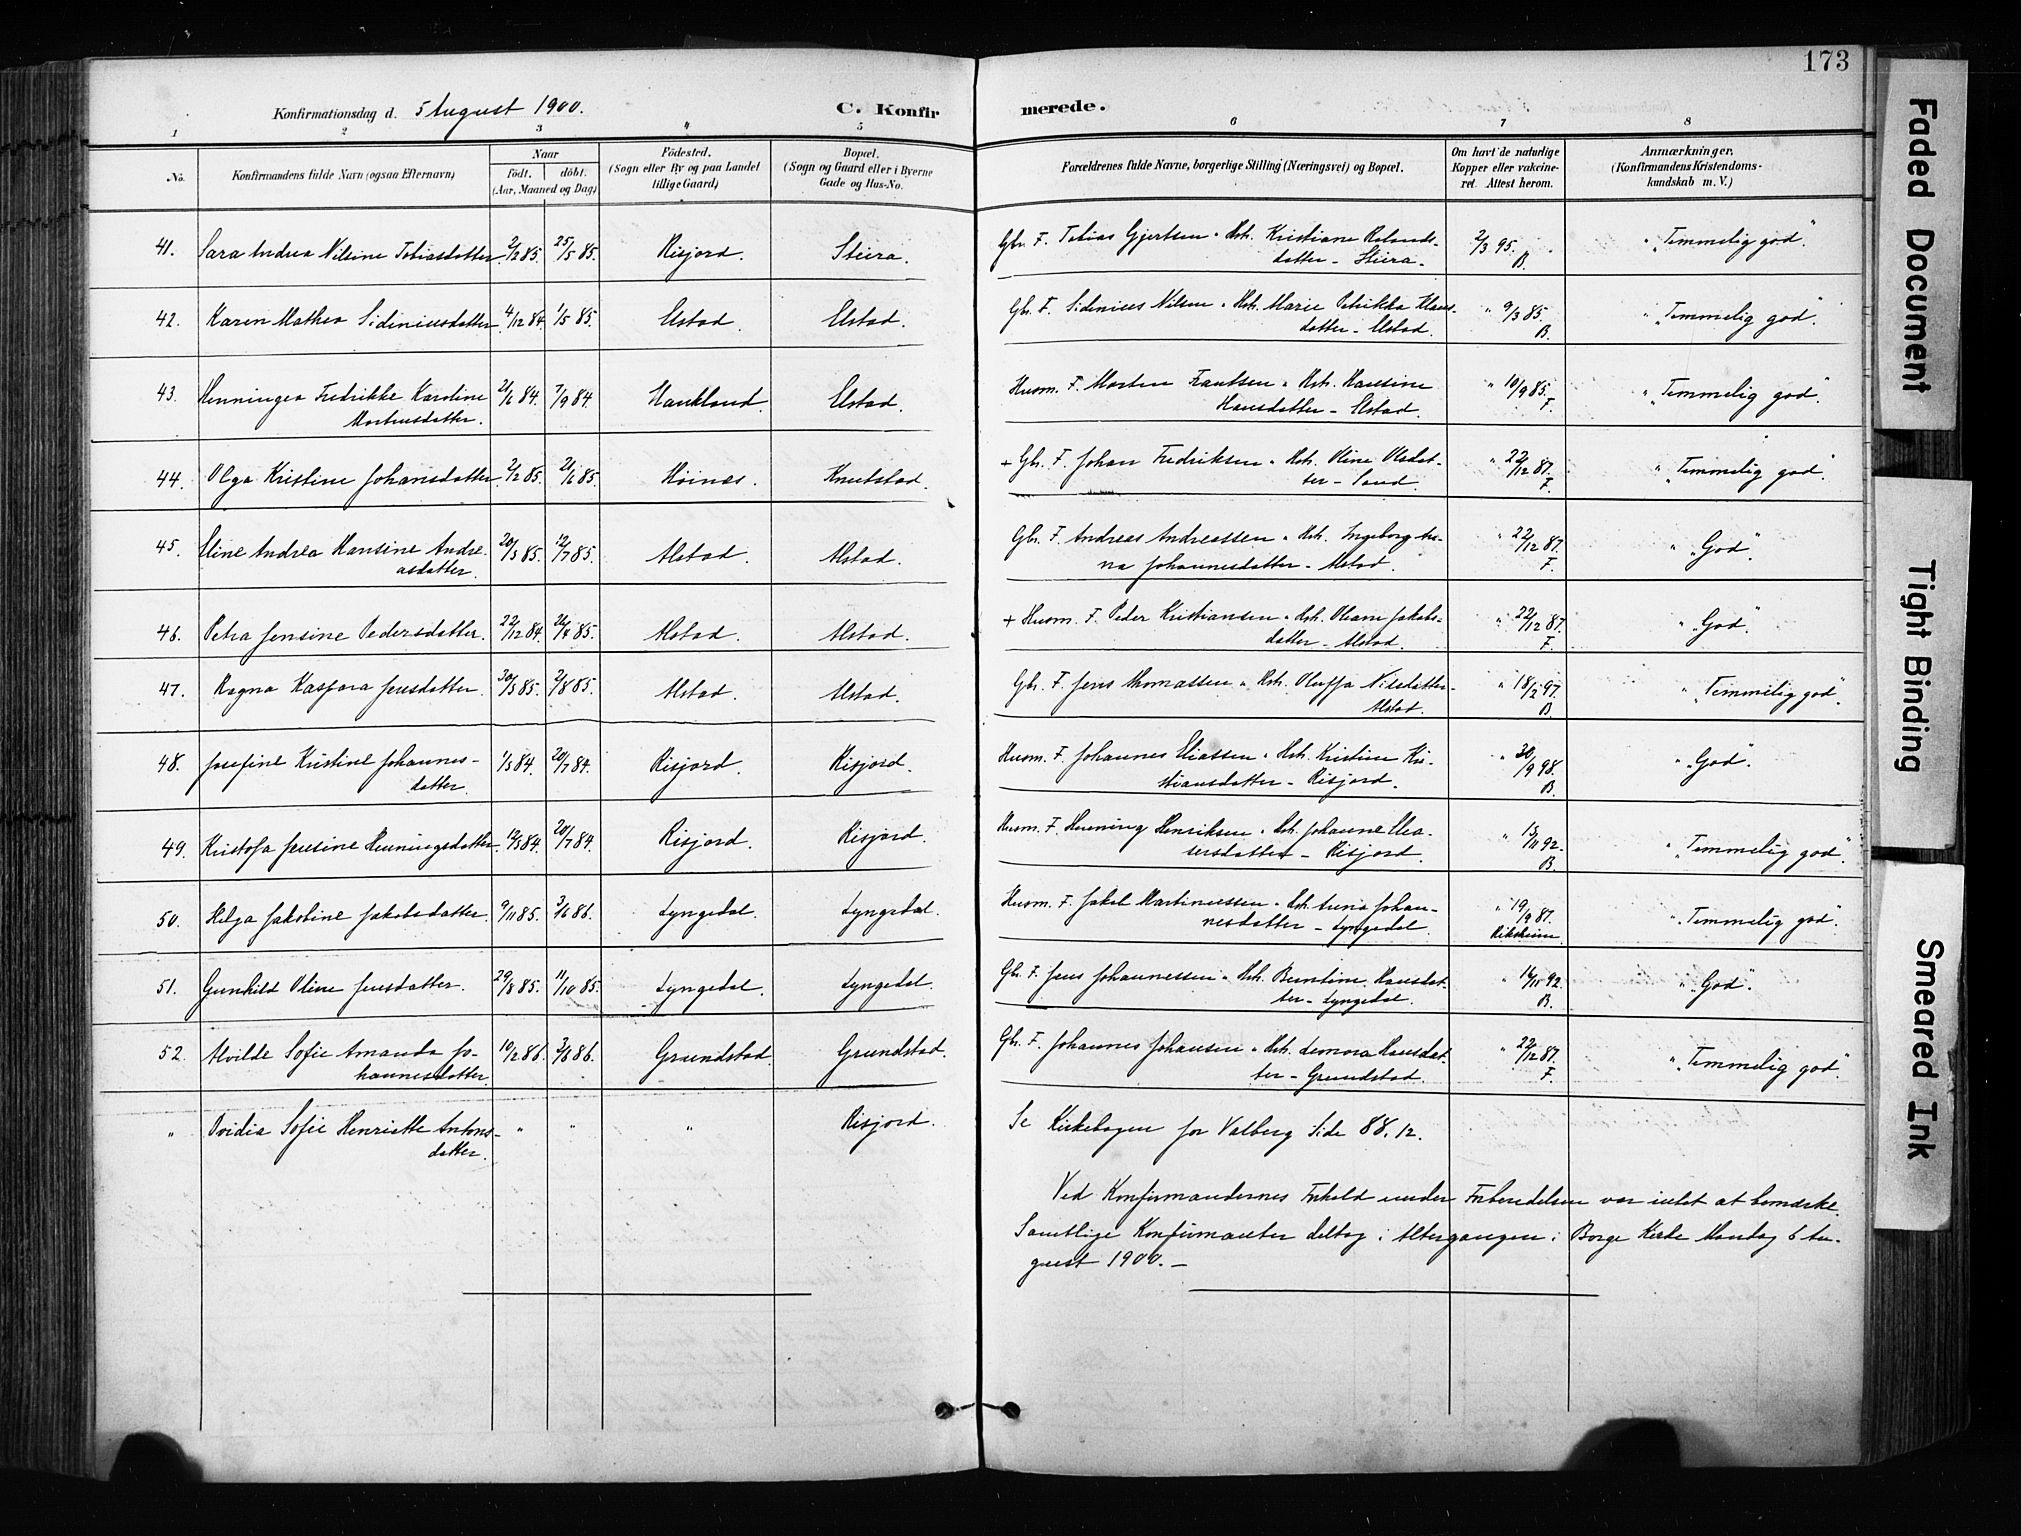 173
Konfirmationsdag d. 5 August 1900.
C. Konfir
merede.
1 2 3 4 5
6 7 8
No.
Konfirmandens fulde Navn (ogsaa Efternavn)
Naar
født. døbt.
(Aar, Maaned og Dag)
Födested.
(Sogn eller By og paa Landet
tillige Gaard)
Bopæl.
(Sogn og Gaard eller i Byerne
Gade og Hus-No.
Forældrenes fulde Navne, borgerlige Stilling (Næringsvei) og Bopæl.
Om havt de naturlige
Kopper eller vakcine-
ret. Attest herom.
Anmærkninger.
(Konfirmandens Kristendoms-
kundskab m. V.)
41. Sara Andrea Nilsine Tobiasdatter. 2/2 85. 25/5 85. Risjord. Steira.
Gbr. F. Tobias Gjertsen " Hst. Kristiane Rolands-
datter - Steira.
2/3 95. B. " "Temmelig god".
42. Karen Mathea Sideniusdatter. 4/12 84. 1/5 85. Elstad. Elstad.
Gbr. F. Sidenius Nilsen " Hst. Marie Petrikka Klaus-
datter - Elstad.
" 9/3 85. B. " "Temmelig god".
43. Henningea Fredrikke Karoline
Mortensdatter. 21/6 84. 7/9 84. Haukland. Elstad.
Husm. F. Morten Frantsen " Hst. Hansine
Hansdatter - Elstad.
" 10/9 85. F. " "Temmelig god".
44. Olga Kristine Johansdatter. 2/2 85. 21/6 85. Höinæs. Knutstad.
+ Gbr. F. Johan Fredriksen " Hst. Oline Olsdat-
ter - Sand.
" 22/12 87. F. " "Temmelig god".
45. Eline Andrea Hansine Andre-
asdatter. 20/3 85. 12/7 85. Alstad. Alstad.
Gbr. F. Andreas Andreassen " Hst. Ingeborg An-
na Johannesdatter - Alstad.
" 22/12 87. F. " "God".
46. Petra Jensine Pedersdatter. 22/12 84. 85. Alstad. Alstad.
+ Husm. F. Peder Kristiansen " Hst. Oleane Jakobs-
datter - Alstad.
" 22/12 87. F. " "God".
47. Ragna Kaspara Jensdatter. 30/5 85. 2/8 85. Alstad. Alstad.
Gbr. F. Jens Thomassen " Hst. Oluffa Nilsdatter -
Alstad.
" 18/2 97. B. " "Temmelig god".
48. Josefine Kristine Johannes-
datter. 1/5 84. 20/7 84. Risjord. Risjord.
Husm. F. Johannes Eliassen " Hst. Kristine Kri-
stiansdatter - Risjord.
" 30/9 98. B. " "God".
49. Kristofa Jensine Henningsdatter. 84. 20/7 84. Risjord. Risjord.
Husm. F. Henning Henriksen " Hst. Johanne
- Risjord.
" 15/11 92. B. " "Temmelig god".
50. Helga Jakobine Jakobsdatter. 9/11 85. 3/6 86. Lyngedal. Lyngedal.
Husm. F. Jakob Martinussen " Hst. Anna Johan-
nesdatter - Lyngedal.
" 19/9 87. " "Temmelig god".
51. Gunhild Oline Jensdatter. 29/8 85. 11/10 85. Lyngedal. Lyngedal.
Gbr. F. Jens Johannessen " Hst. Berntine Hansdat-
ter - Lyngedal.
" 14/11 92. B. " "God".
52. Alvilde Sofie Amanda Jo-
hannesdatter. 19/2 86. 86. Grundstad. Grundstad.
Gbr. F. Johannes Johansen " Hst. Leonora Hansdat-
ter - Grundstad.
" 22/12 87. F. " "Temmelig god".
" Ovidia Sofie Henriette Antons-
datter. " " " Risjord.
Se Kirkebogen for Valberg Side 88. 12.
Ved Konfirmandernes Forhold under Forberedelsen var intet at bemærke.
Samtlige Konfirmanter deltog i Altergangen i Borge Kirke Mandag 6 Au-
gust 1900. -
Faded Document
Tight Binding
Smeared Ink